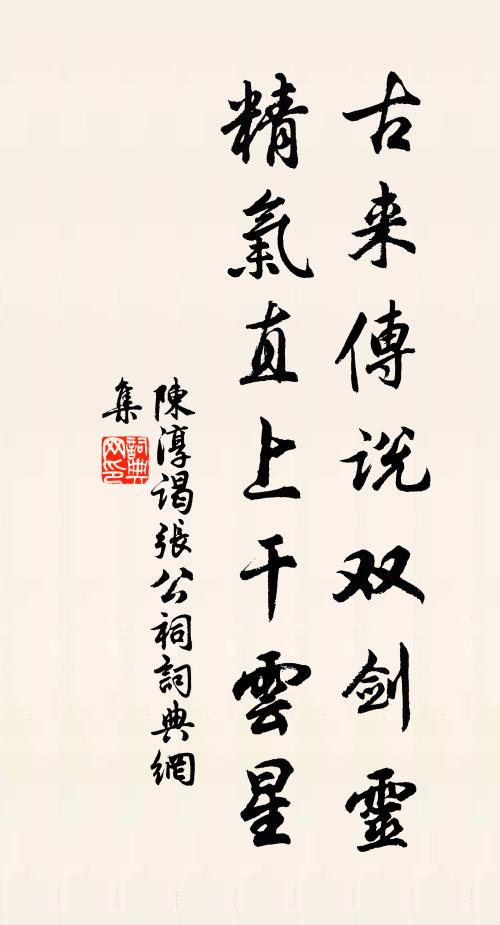 古来傳説双剑靈
精氣直上干雲星
陳淳谒張公祠詞典網
集
詞典
网印